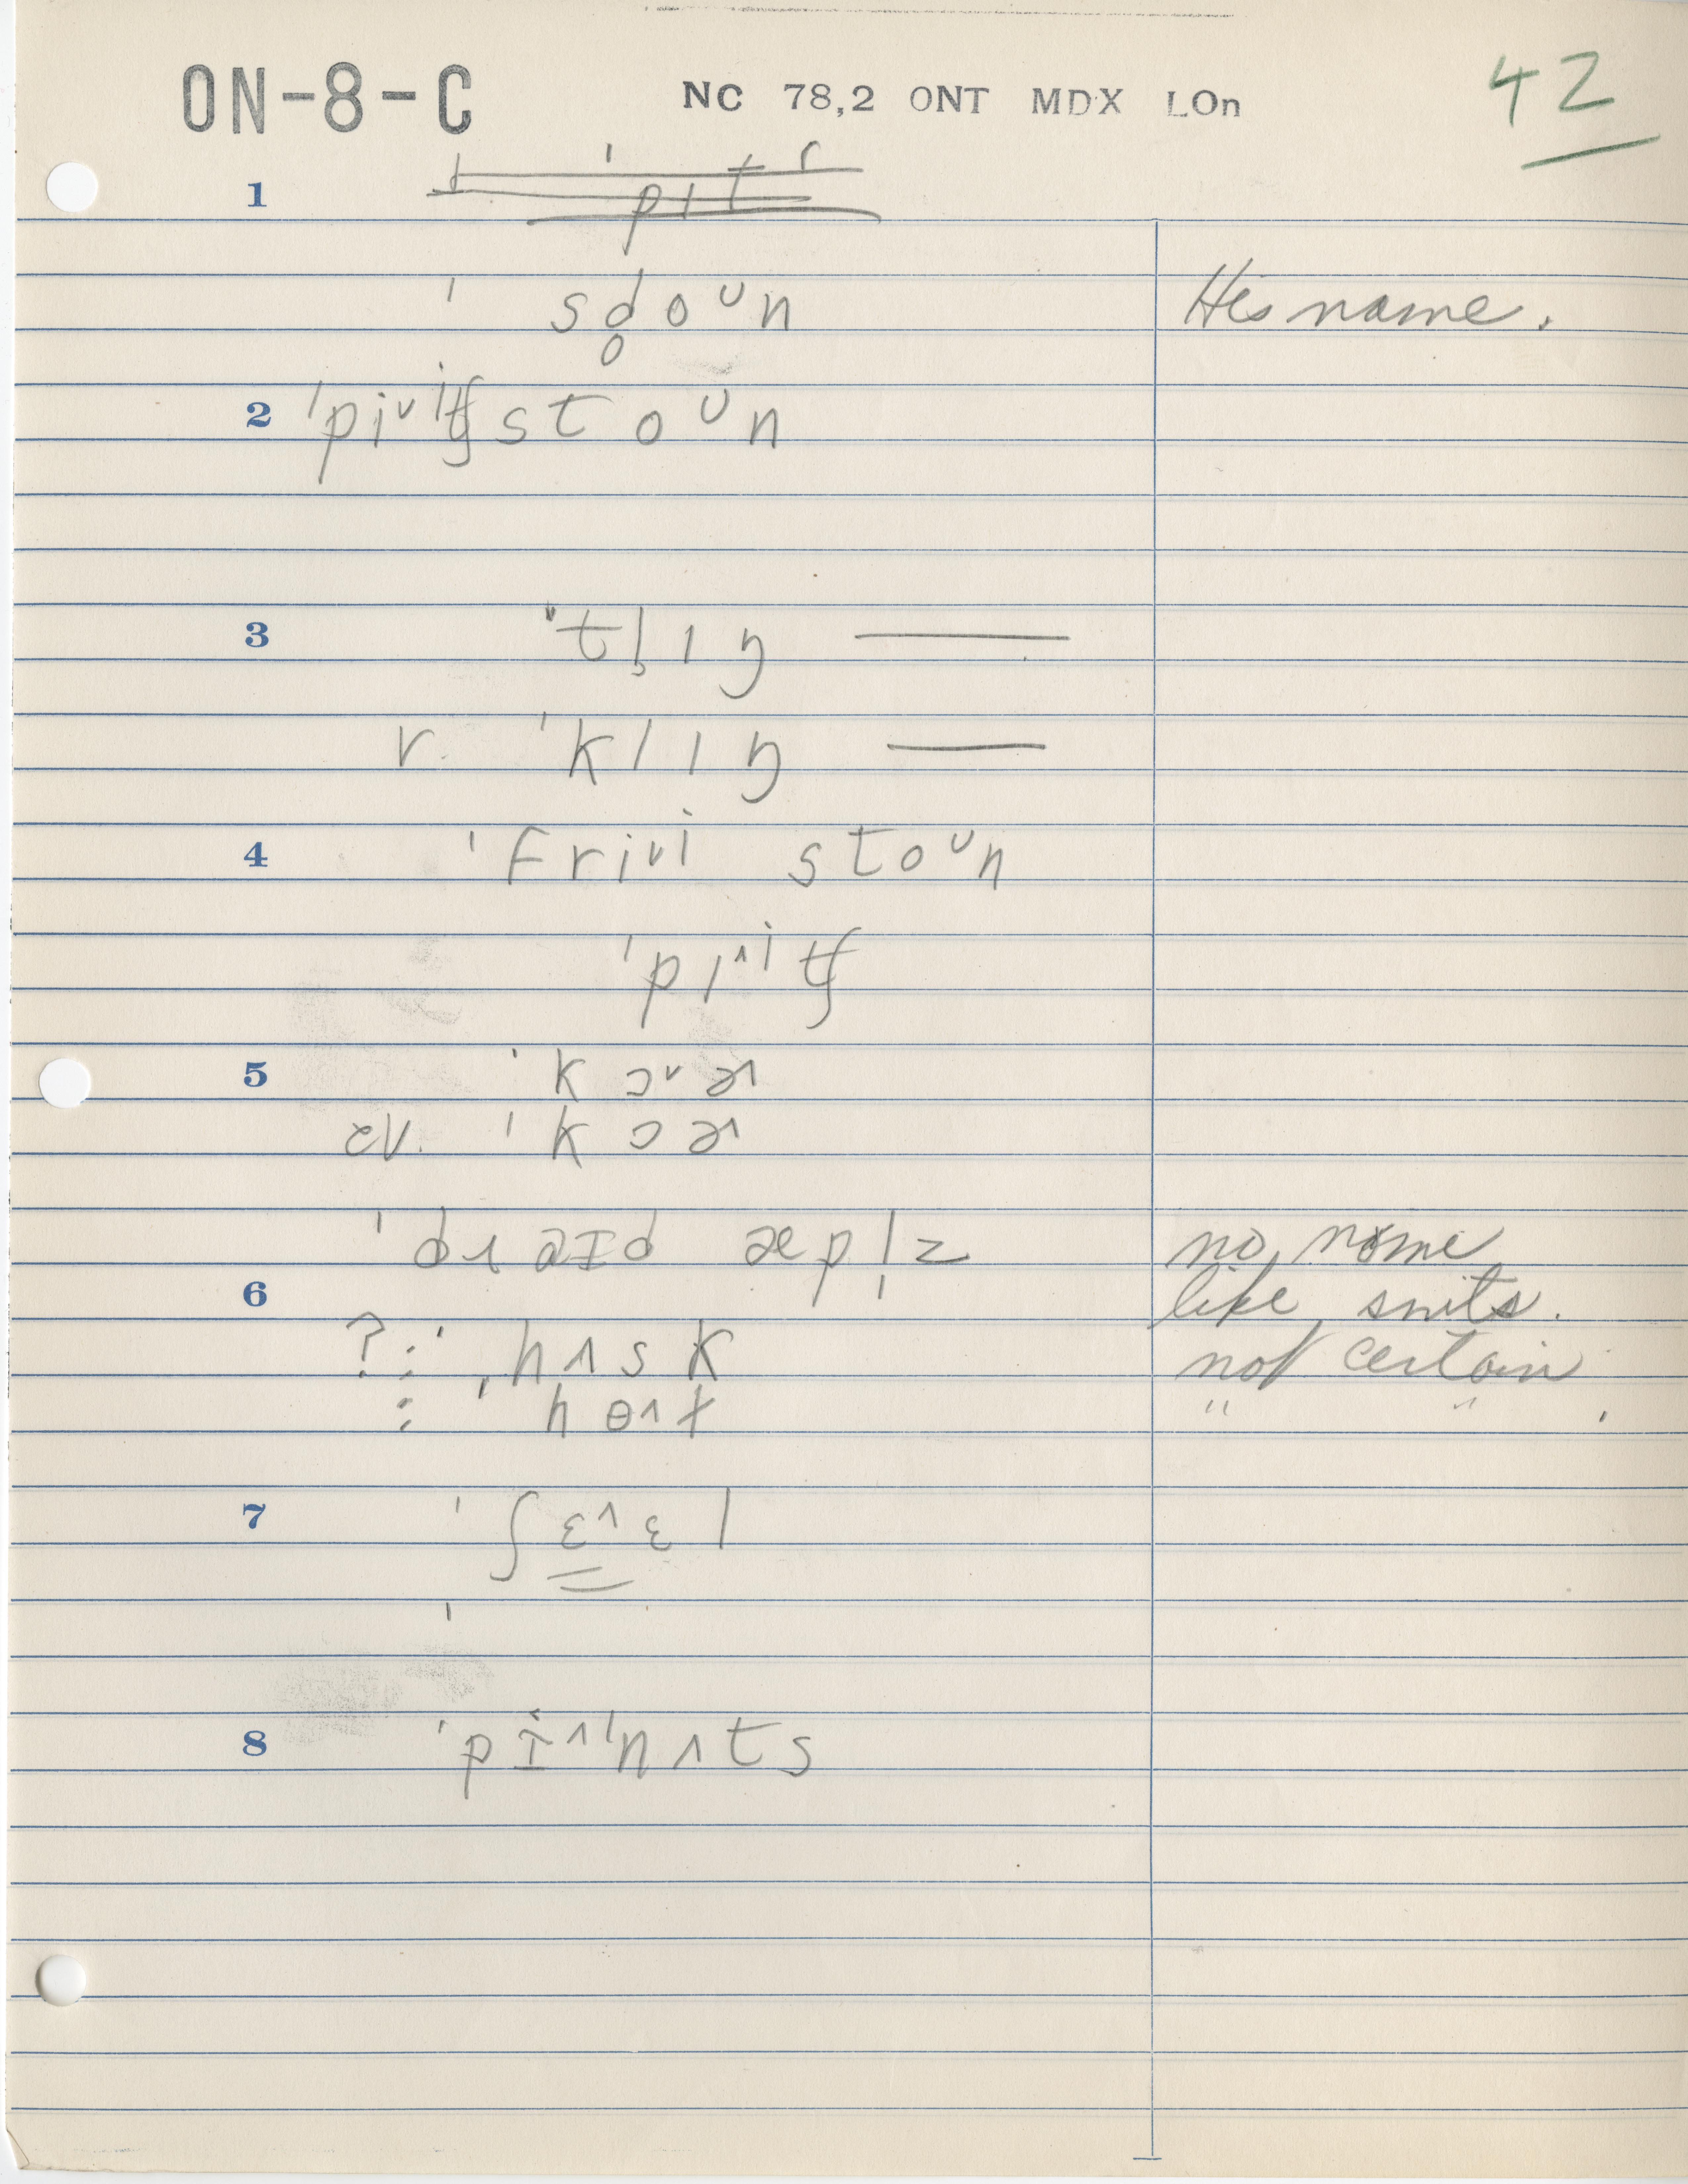 ON-8-C NC 78,2 ONT MDX LOn 42
1 pɪt
ˈ sd̥oᴜn His name.
2 ˈpiᵛitʃ stoᴜn
3 ˈtl̥ɪŋ —
r. ˈklɪŋ —
4 ˈfriᵛi stoᴜn
ˈpɪ^itʃ
5 ˈkɔᵛɚ
cv. ˈkɔɚ
ˈdraɪd æpl̩z no name
6 like snits.
?: ˈhʌsk not certain
: ˈhɵ^t " " .
7 ˈʃɛ^ɛl
8 ˈpɪ^ˈnʌts